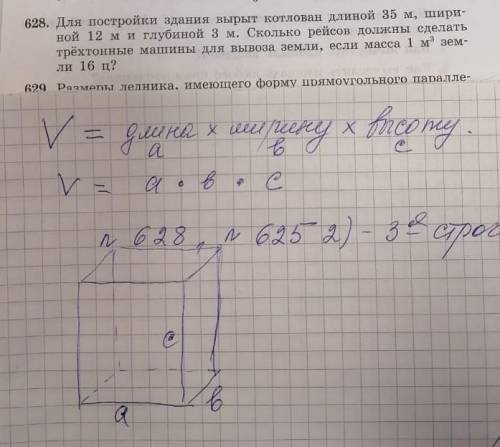 628. Для постройки здания вырыт котлован длиной 35 м, шири-
ной 12 м и глубиной 3 м. Сколько рейсов должны сделать
трёхтонные машины для вывоза земли, если масса 1 м³ зем-
ли 16 ц?
629. Размеры ледника, имеющего форму прямоугольного паралле-
V = длина x ширину x высоту.
а в с
V = а · в · с
№ 628, № 625 2) - 3я строч
с
а
в